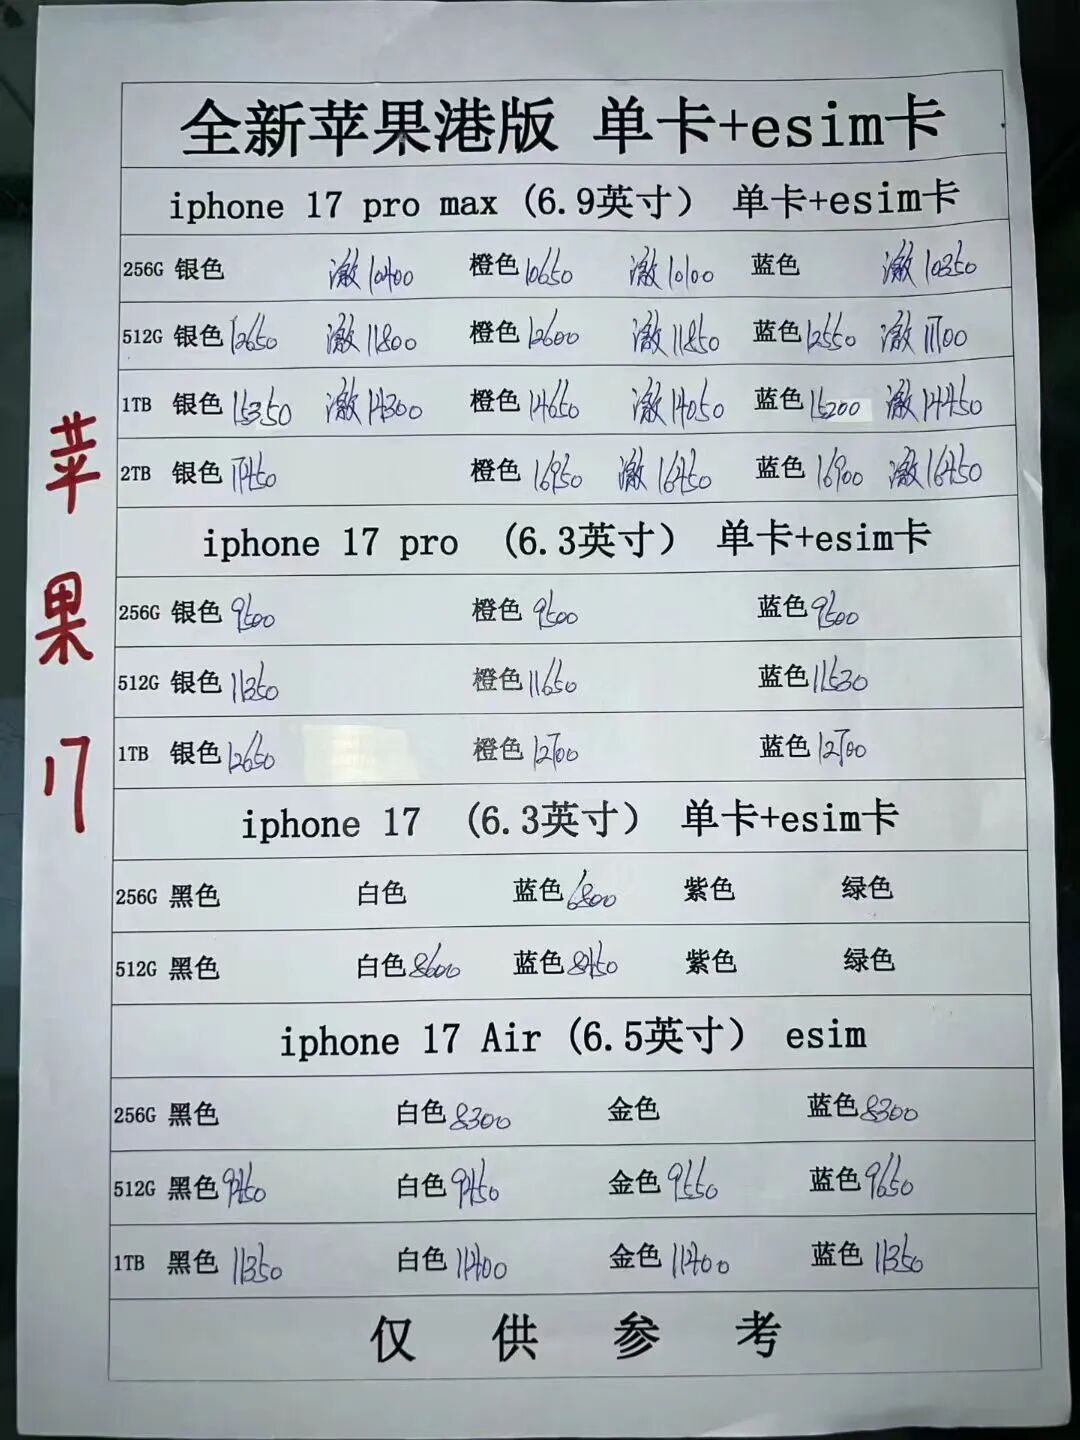 全新苹果港版 单卡+esim卡
iphone 17 pro max (6.9英寸) 单卡+esim卡
256G 银色 激10400 橙色10650 激10100 蓝色 激10350
512G 银色12650 激11800 橙色12600 激11850 蓝色12550 激11700
1TB 银色15350 激14300 橙色14650 激14050 蓝色15200 激14450
2TB 银色17450 橙色16950 激16450 蓝色16900 激16450
iphone 17 pro (6.3英寸) 单卡+esim卡
256G 银色9500 橙色9500 蓝色9500
512G 银色11350 橙色11650 蓝色11530
1TB 银色12650 橙色12700 蓝色12700
iphone 17 (6.3英寸) 单卡+esim卡
256G 黑色 白色 蓝色6800 紫色 绿色
512G 黑色 白色8600 蓝色8450 紫色 绿色
iphone 17 Air (6.5英寸) esim
256G 黑色 白色8300 金色 蓝色8300
512G 黑色9450 白色9450 金色9550 蓝色9650
1TB 黑色11350 白色11400 金色11400 蓝色11350
仅供参考
苹果17